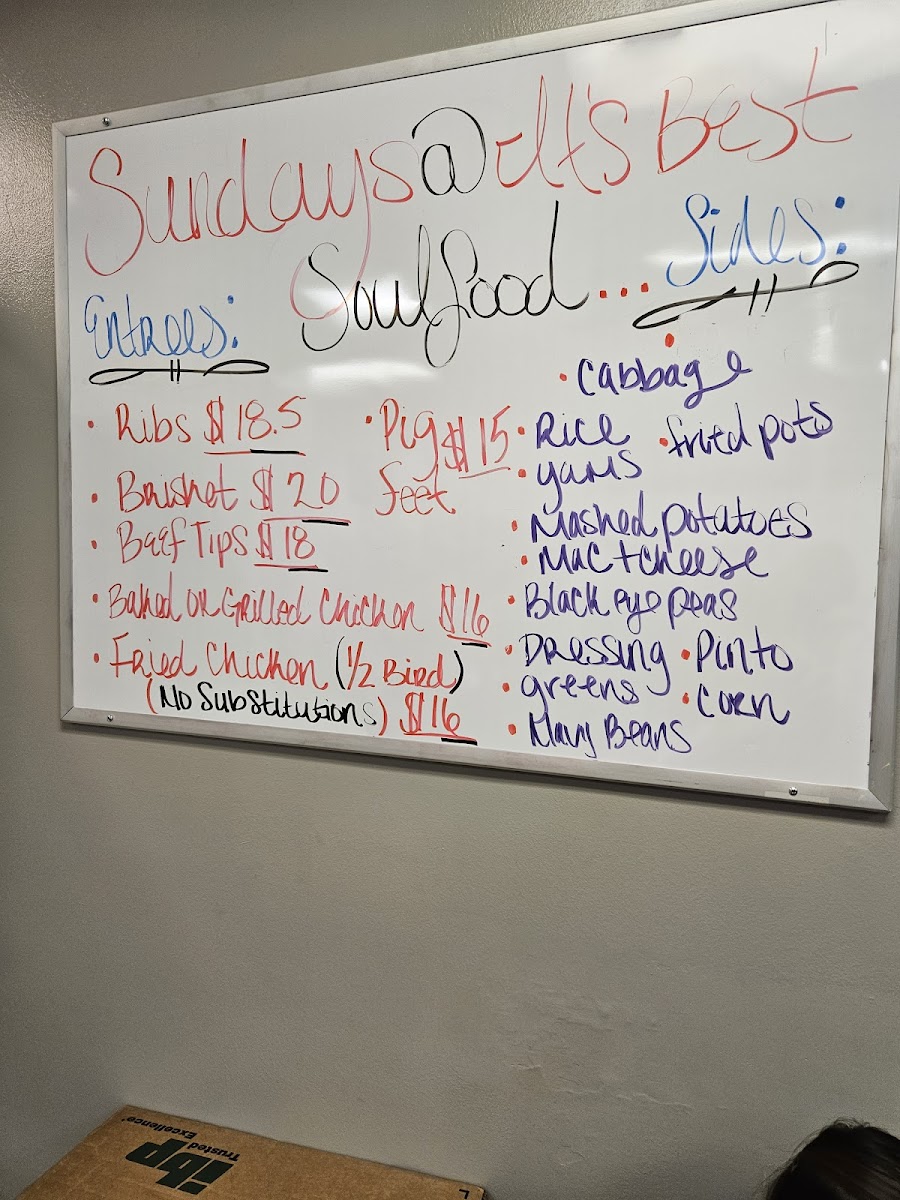 Sundays @ It's Best
Soulfood...
Entrees:
• Ribs $18.5
• Brisket $20
• Beef Tips $18
• Baked or Grilled Chicken $16
• Fried Chicken (1/2 Bird)
(No Substitutions) $16
• Pig $15
feet
Sides:
• Cabbage
• Rice • fried pots
• yams
• Mashed potatoes
• Mac + cheese
• Black eye peas
• Dressing • Pinto
• greens • Corn
• Navy Beans
ibp
Trusted
Excellence